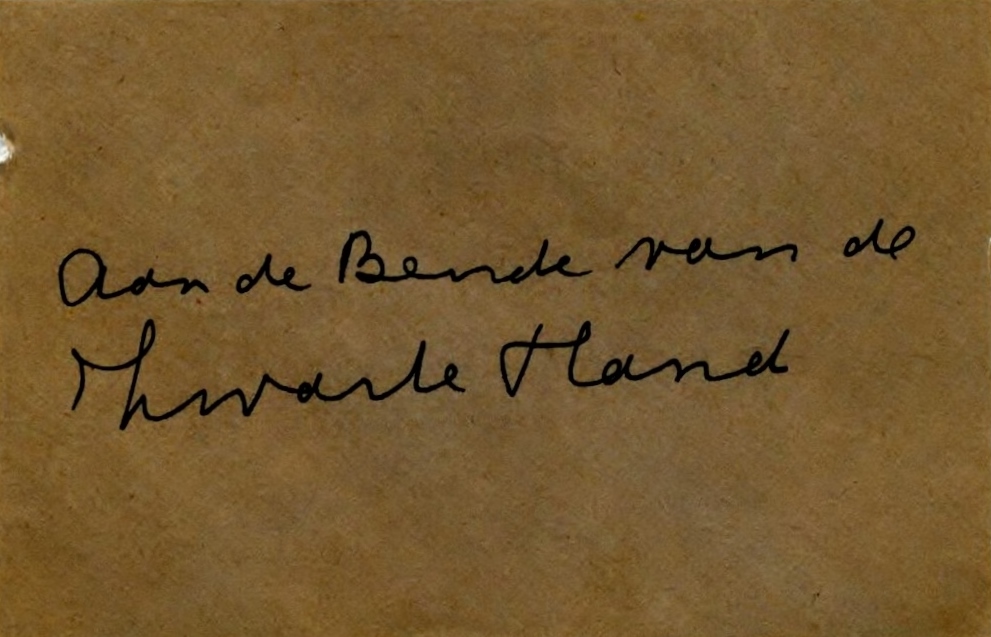 Aan de Bende van de
Zwarte Hand